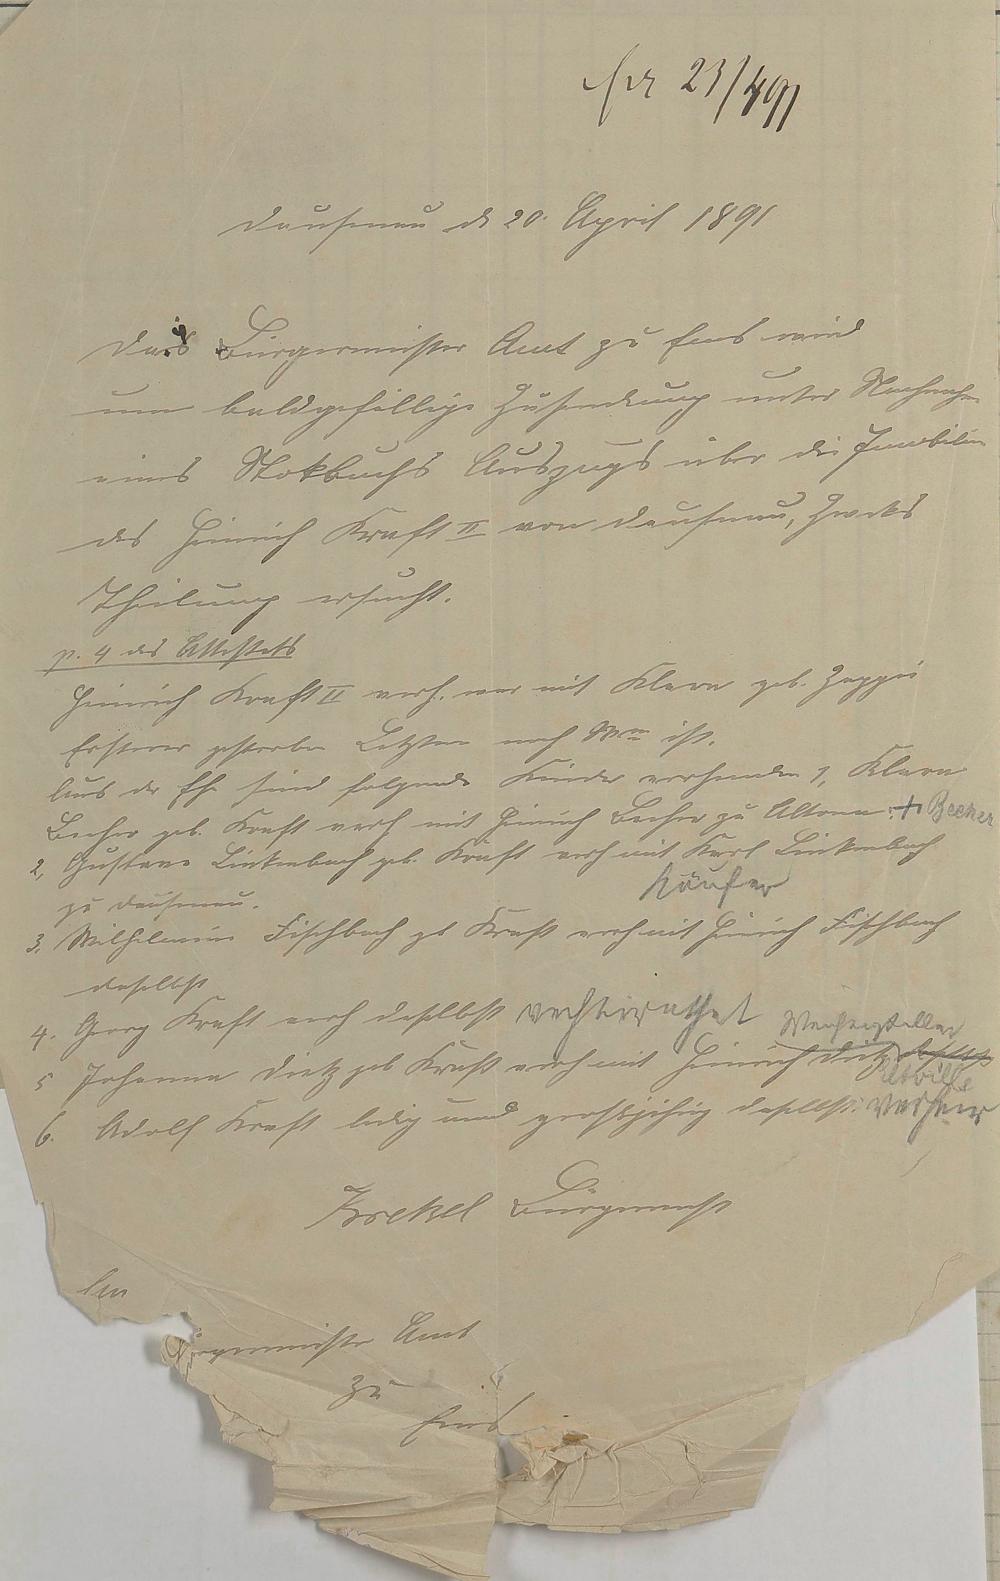 23/4 91
Dausenau d 20. April 1891
Das Bürgermeister Amt zu Ems wird
um baldgefällige Zusendung unter Nachnahme
eines Stokbuchs Auszugs über die Imobilien
des Heinrich Kraft II von Dausenau, Zwecks
Theilung ersucht.
p. 4 des Attestats
Heinrich Kraft II verh. war mit Klara geb.
Ersterer gestorben Letztere noch Wwe ist.
Aus der Ehe sind folgende Kinder vorhanden 1, Klara
Becher geb. Kraft verh mit Heinrich Becher zu Altona. + Becker
2, Gustave Linkenbach geb. Kraft verh mit Karl Linkenbach
zu Dausenau.
Käufer
3, Wilhelmine Fischbach gb Kraft verh mit Heinrich Fischbach
daselbst
4. Georg Kraft verh daselbst verheirathet
Weichensteller
5 Johanna Dietz geb Kraft verh mit Heinrich Dietz daselbst
Eltville
6. Adolf Kraft ledig und großjährig daselbst.
Bürgermst
An
Bürgermeister Amt
zu
Ems